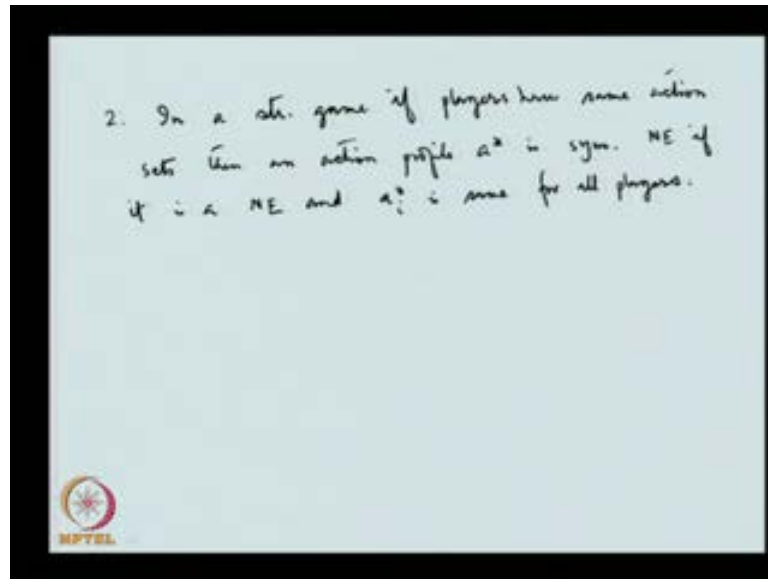 2. In a str. game if players have same action
sets then an action profile a* is sym. NE if
it is a NE and aᵢ* is same for all players.
NPTEL